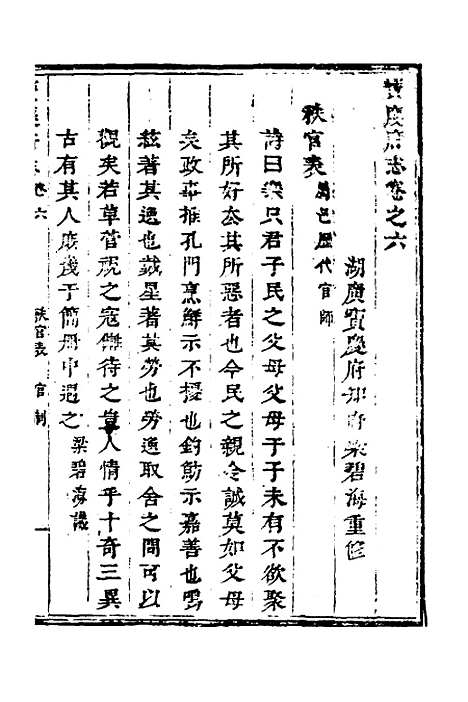 寶慶府志卷之六
湖廣寶慶府知府梁碧海重修
秩官表 屬邑歷代官師
詩曰樂只君子民之父母父母于子未有不欲聚
其所好去其所惡者也今民之親令誠莫如父母
矣政事推孔門烹鮮示不擾也釣魴示嘉善也鳴
絃著其逸也戴星著其勞也勞逸取舍之間可以
觀矣若草菅視之寇讎待之豈人情乎十奇三異
古有其人庶幾于簡冊中遇之 梁碧海識
志卷六
秩官表 官制
一